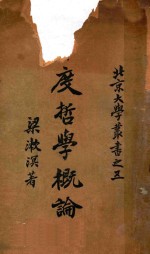 北京大學叢書之五
度哲學概論
梁漱溟著